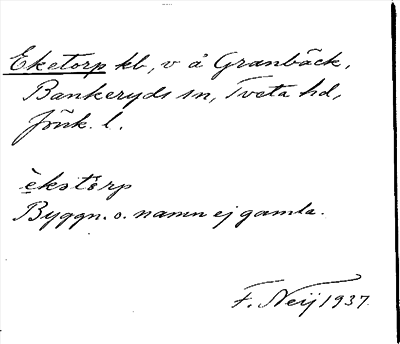 Eketorp kb, v å Granbäck,
Bankeryds sn, Tveta hd,
Jönk. l.
èkstòrp
Byggn. o. namn ej gamla.
F. Neij 1937.